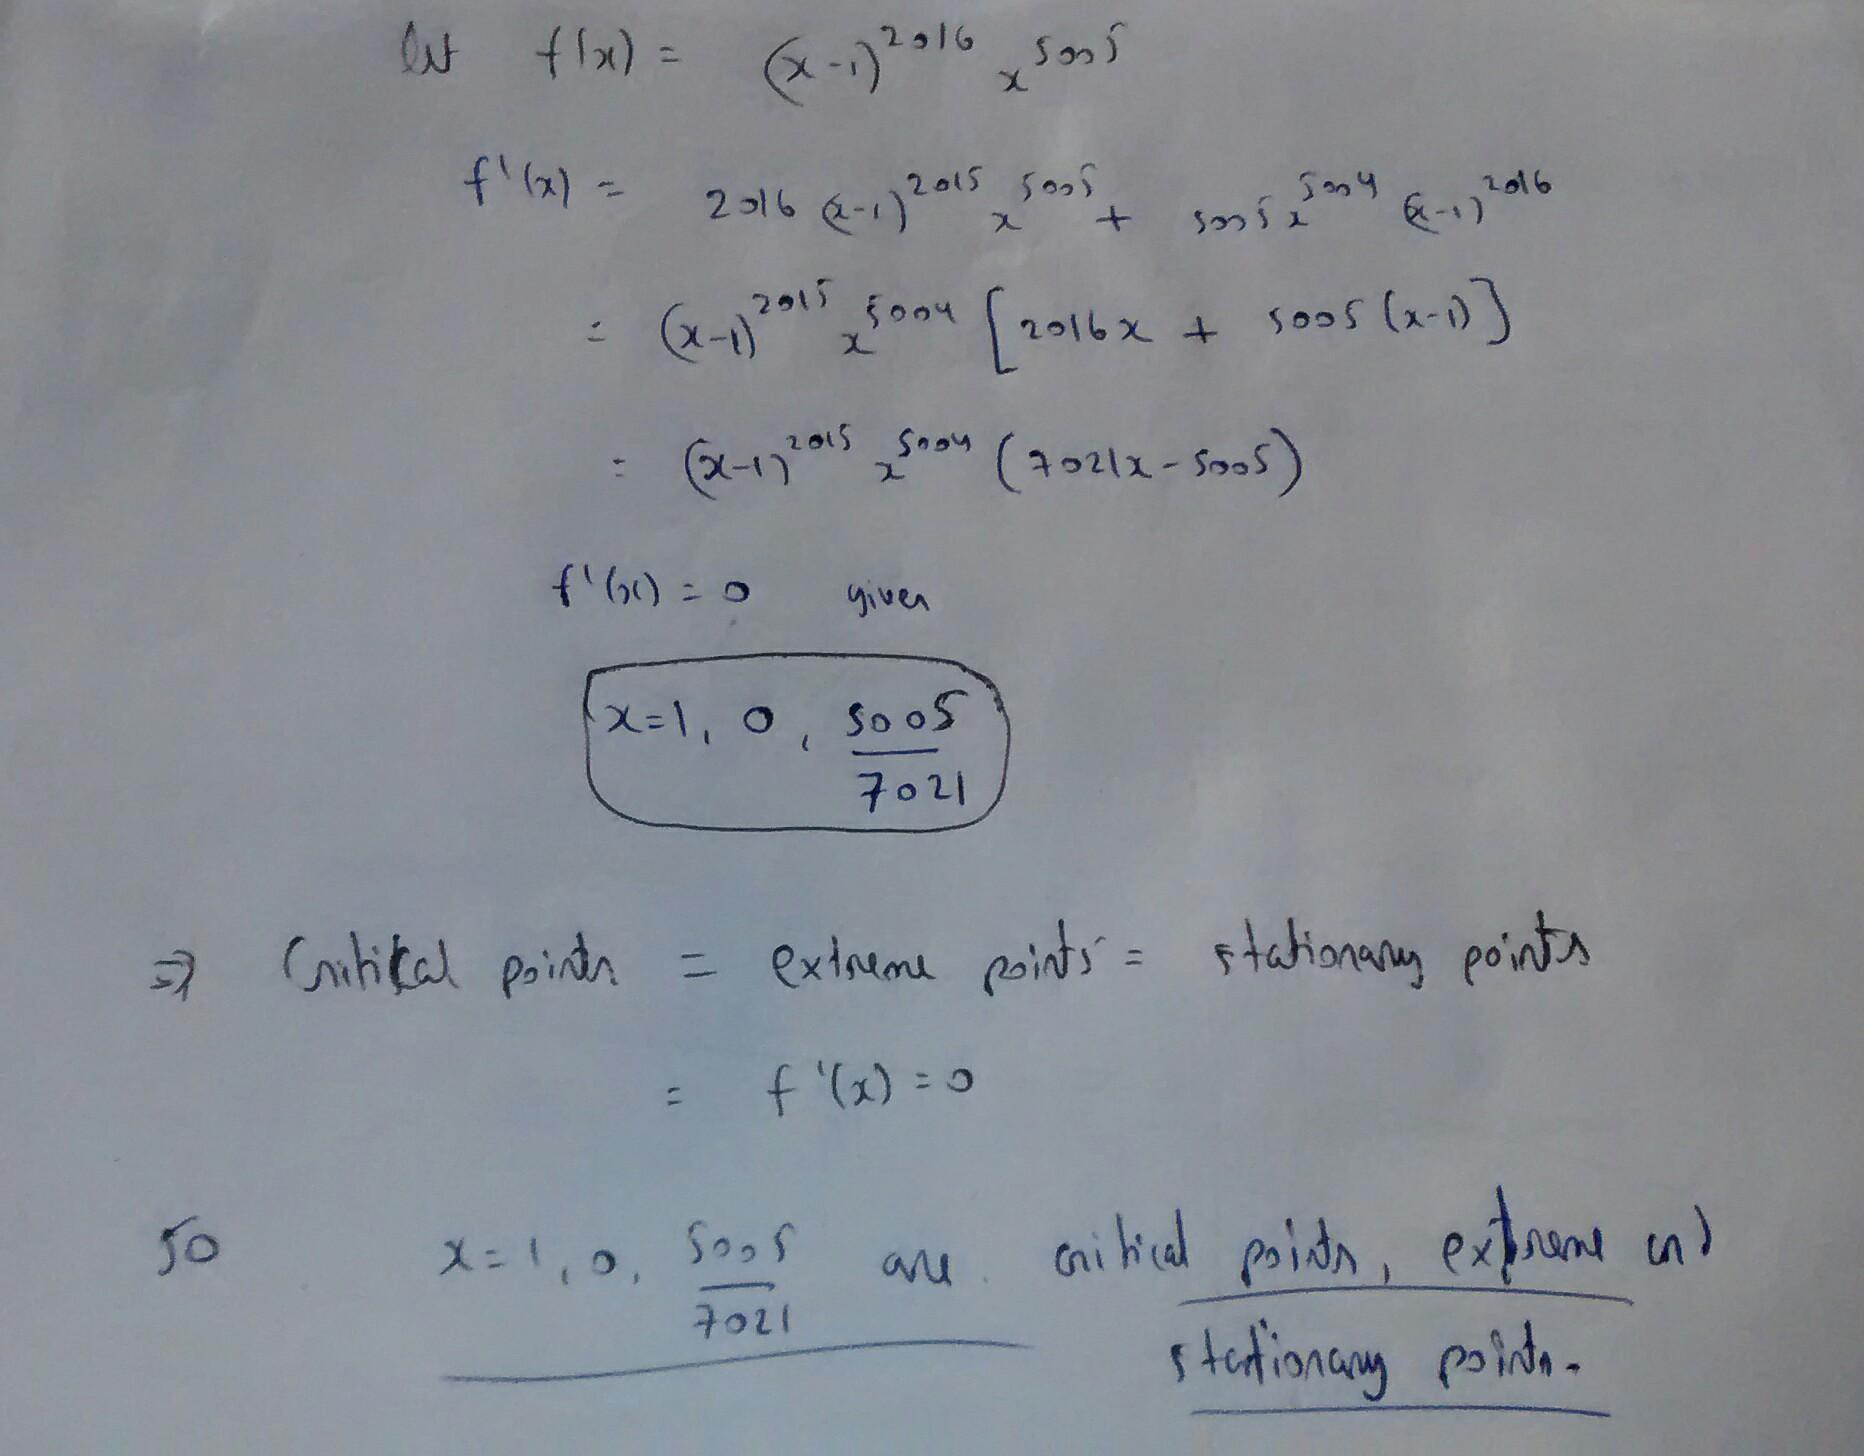 let f(x) = (x-1)^2016 x^5005
f'(x) = 2016 (x-1)^2015 x^5005 + 5005 x^5004 (x-1)^2016
= (x-1)^2015 x^5004 [2016x + 5005 (x-1)]
= (x-1)^2015 x^5004 (7021x - 5005)
f'(x) = 0 given
x=1, 0, 5005/7021
⇒ Critical points = extreme points = stationary points
= f'(x) = 0
so x=1, 0, 5005/7021 are critical points, extreme and
stationary points.